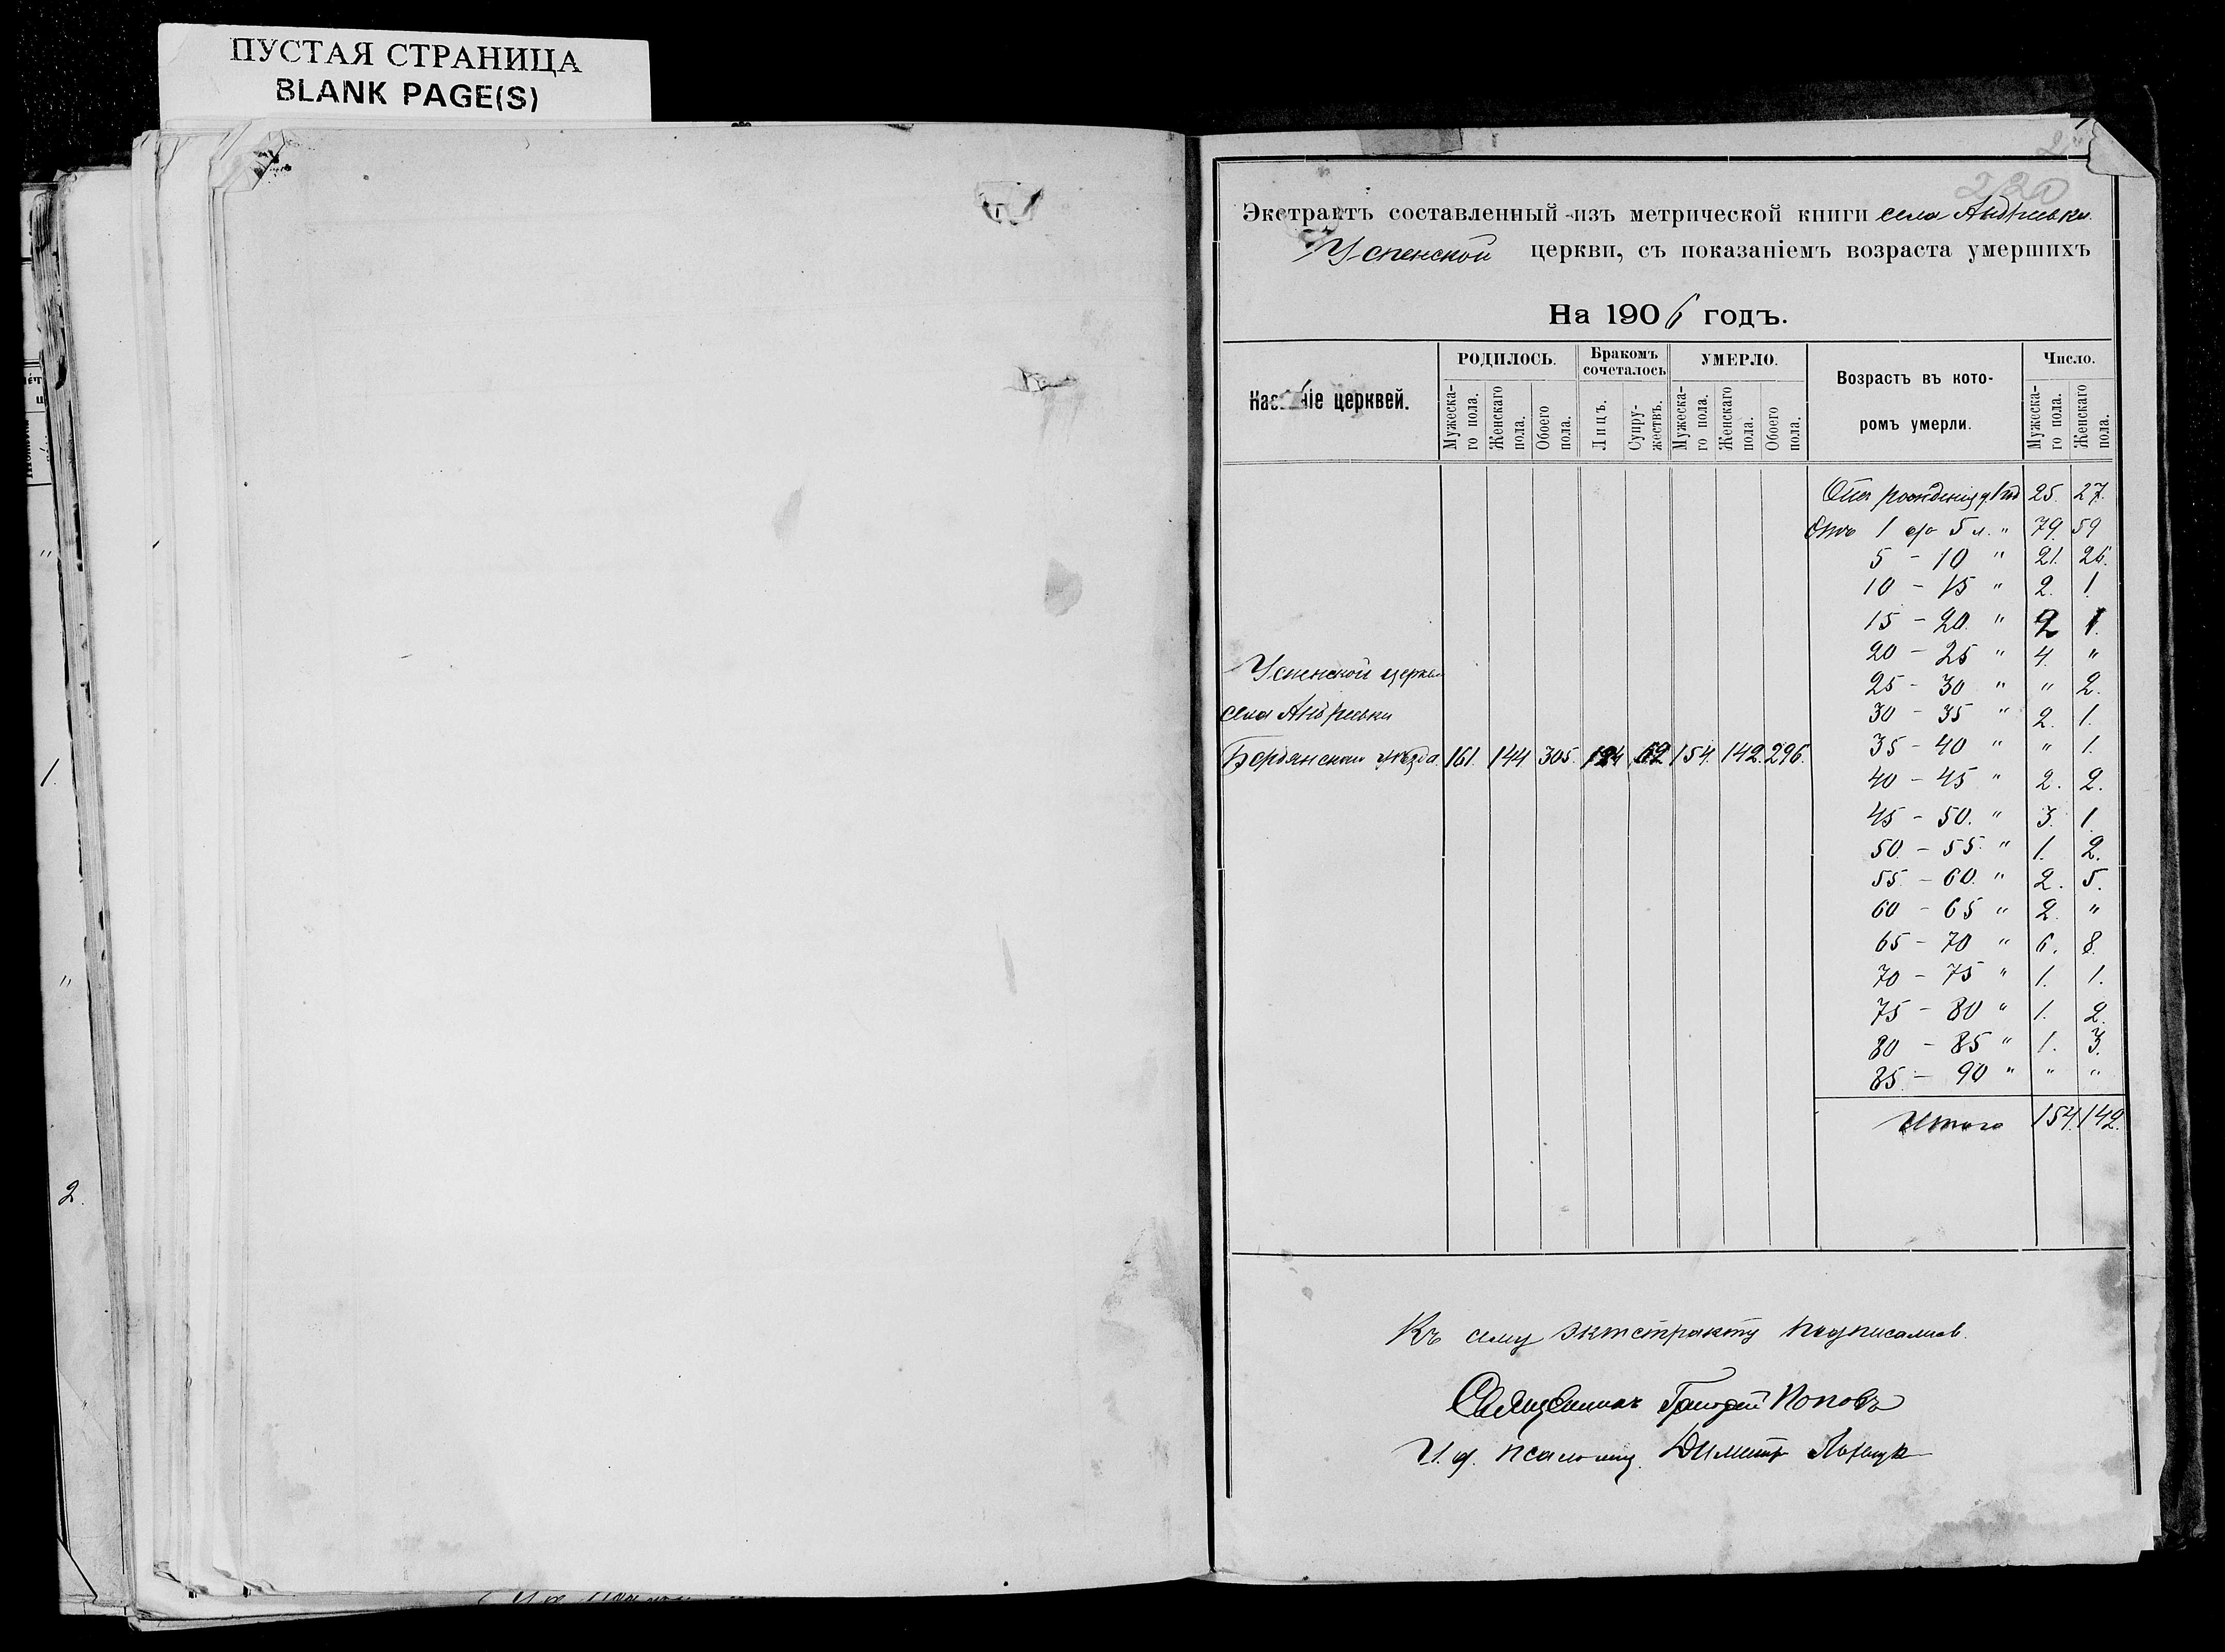 ПУСТАЯ СТРАНИЦА
BLANK PAGE(S)
Экстрактъ составленный изъ метрической книги села Андреевки
Успенской церкви, съ показаніемъ возраста умершихъ
На 1906 годъ.
Названіе церквей.
РОДИЛОСЬ.
Бракомъ сочеталось
УМЕРЛО.
Возрастъ въ кото-
ромъ умерли.
Число.
Мужеска-го пола.
Женскаго пола.
Обоего пола.
Лицъ.
Супру-жествъ.
Мужеска-го пола.
Женскаго пола.
Обоего пола.
Мужеска-го пола.
Женскаго пола.
Отъ рожденія д. 1 год 25. 27.
Отъ 1 до 5 л. " 79. 59
5 - 10 " 21. 26.
10 - 15 " 2. 1.
15 - 20. " 2 1.
20 - 25 " 4. "
25 - 30 " " 2.
30 - 35 " 2. 1.
35 - 40 " " 1.
40 - 45 " 2. 2.
45 - 50. " 3. 1.
50 - 55. " 1. 2.
55 - 60. " 2. 5.
60 - 65 " 2. "
65 - 70 " 6. 8.
70 - 75 " 1. 1.
75 - 80 " 1. 2.
80 - 85 " 1. 3.
85 - 90 " " "
Итого 154. 142.
Успенской церкви
села Андреевки
Бердянскаго уѣзда. 161. 144 305. 124 62 154. 142. 296.
Къ сему экстракту подписались.
Священникъ Григорій Поповъ
И. д. псаломщ. Димитр
1.
2.